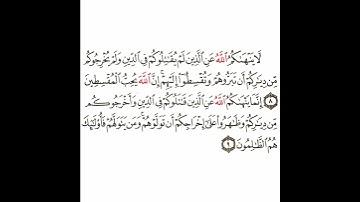 لَا يَنْهَىٰكُمُ ٱللَّهُ عَنِ ٱلَّذِينَ لَمْ يُقَـٰتِلُوكُمْ فِى ٱلدِّينِ وَلَمْ يُخْرِجُوكُم
مِّن دِيَـٰرِكُمْ أَن تَبَرُّوهُمْ وَتُقْسِطُوٓا۟ إِلَيْهِمْ ۚ إِنَّ ٱللَّهَ يُحِبُّ ٱلْمُقْسِطِينَ
٨ إِنَّمَا يَنْهَىٰكُمُ ٱللَّهُ عَنِ ٱلَّذِينَ قَـٰتَلُوكُمْ فِى ٱلدِّينِ وَأَخْرَجُوكُم
مِّن دِيَـٰرِكُمْ وَظَـٰهَرُوا۟ عَلَىٰٓ إِخْرَاجِكُمْ أَن تَوَلَّوْهُمْ ۚ وَمَن يَتَوَلَّهُمْ فَأُو۟لَـٰٓئِكَ
هُمُ ٱلظَّـٰلِمُونَ ٩